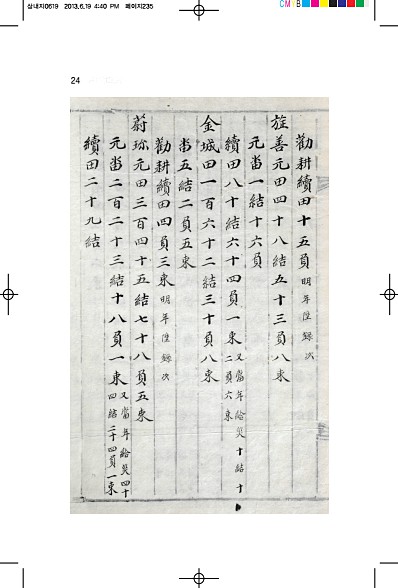 삼내지0619 2013.6.19 4:40 PM 페이지235
CMYB
24
勸耕續田十五負明年陞錄次
旌善元田四十八結五十三負八束
元畓一結十六負
續田八十結六十四負一束又當年給災十結十二負六束
金城田一百六十二結三十負八束
畓五結二負五束
勸耕續田四負三束明年陞錄次
蔚珍元田三百四十五結七十八負五束
元畓二百二十三結十八負一束又當年給災四十四結二十四負一束
續田二十九結